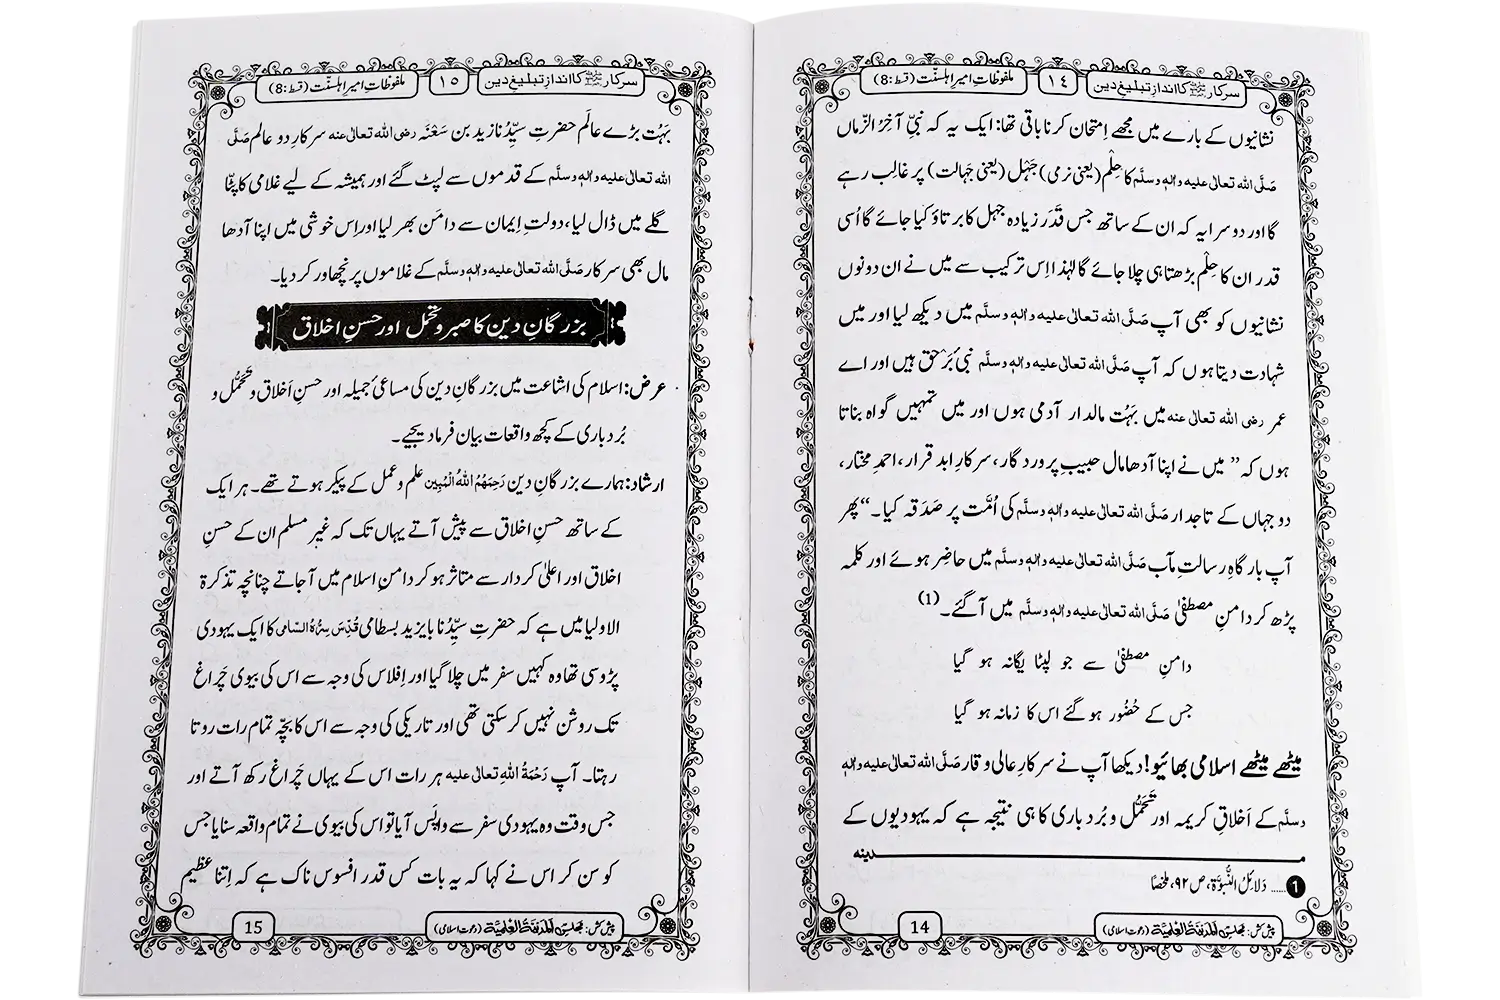 سرکار ﷺ کا اندازِ تبلیغِ دین
١٤
ملفوظاتِ امیرِ اہلسنّت (قسط:8)
نشانیوں کے بارے میں مجھے اِمتحان کرنا باقی تھا: ایک یہ کہ نبیِّ آخِرُ الزّماں
صَلَّی اللہ تعالٰی علیہ واٰلہٖ وسلَّم کا حِلْم (یعنی نرمی) جَہْل (یعنی جَہالت) پر غالِب رہے
گا اور دوسرا یہ کہ ان کے ساتھ جس قَدَر زیادہ جہل کا برتاؤ کیا جائے گا اُسی
قدر ان کا حِلْم بڑھتا ہی چلا جائے گا لہٰذا اِس ترکیب سے میں نے ان دونوں
نشانیوں کو بھی آپ صَلَّی اللہ تعالٰی علیہ واٰلہٖ وسلَّم میں دیکھ لیا اور میں
شہادت دیتا ہوں کہ آپ صَلَّی اللہ تعالٰی علیہ واٰلہٖ وسلَّم نبیِ بَرْحق ہیں اور اے
عمر رضی اللہ تعالٰی عنہ میں بَہُت مالدار آدمی ہوں اور میں تمہیں گواہ بناتا
ہوں کہ ”میں نے اپنا آدھا مال حبیبِ پروردگار، سرکارِ ابد قرار، احمدِ مختار،
دو جہاں کے تاجدار صَلَّی اللہ تعالٰی علیہ واٰلہٖ وسلَّم کی اُمَّت پر صَدَقہ کیا۔“ پھر
آپ بارگاہِ رسالت مآب صَلَّی اللہ تعالٰی علیہ واٰلہٖ وسلَّم میں حاضِر ہوئے اور کلمہ
پڑھ کر دامنِ مصطفیٰ صَلَّی اللہ تعالٰی علیہ واٰلہٖ وسلَّم میں آگئے۔(1)
دامنِ مصطفیٰ سے جو لپٹا یگانہ ہو گیا
جس کے حُضُور ہو گئے اس کا زمانہ ہو گیا
میٹھے میٹھے اسلامی بھائیو! دیکھا آپ نے سرکارِ عالی وقار صَلَّی اللہ تعالٰی علیہ واٰلہٖ
وسلَّم کے اَخلاقِ کریمہ اور تَحَمُّل و بُردباری کا ہی نتیجہ ہے کہ یہودیوں کے
مـــدینہ
1 ..... دَلائِلُ النُّبوَّۃ، ص ۹۲، ملخصًا
پیش کش: مجلس اَلْمَدِیْنَۃُ الْعِلْمِیَّۃ (دعوتِ اسلامی)
14
سرکار ﷺ کا اندازِ تبلیغِ دین
١٥
ملفوظاتِ امیرِ اہلسنّت (قسط:8)
بَہُت بڑے عالَم حضرتِ سیِّدُنا زید بن سَعْنَہ رضی اللہ تعالٰی عنہ سرکارِ دو عالم صَلَّی
اللہ تعالٰی علیہ واٰلہٖ وسلَّم کے قدموں سے لپٹ گئے اور ہمیشہ کے لیے غلامی کا پٹّا
گلے میں ڈال لیا، دولتِ اِیمان سے دامَن بھر لیا اور اِس خوشی میں اپنا آدھا
مال بھی سرکار صَلَّی اللہ تعالٰی علیہ واٰلہٖ وسلَّم کے غلاموں پر نچھاور کر دیا۔
بزرگانِ دین کا صبر و تحمل اور حسنِ اخلاق
عرض: اسلام کی اشاعت میں بزرگانِ دین کی مساعیٔ جمیلہ اور حسنِ اَخلاق و تَحَمُّل و
بُردباری کے کچھ واقعات بیان فرما دیجیے۔
ارشاد: ہمارے بزرگانِ دین رَحِمَہُمُ اللہُ الْمُبِین علم و عمل کے پیکر ہوتے تھے۔ ہر ایک
کے ساتھ حسنِ اخلاق سے پیش آتے یہاں تک کہ غیر مسلم ان کے حسنِ
اخلاق اور اعلیٰ کردار سے متاثر ہو کر دامنِ اسلام میں آجاتے چنانچہ تذکرۃ
الاولیا میں ہے کہ حضرتِ سیِّدُنا بایزید بسطامی قُدِّسَ سِرُّہُ السَّامی کا ایک یہودی
پڑوسی تھا وہ کہیں سفر میں چلا گیا اور اِفلاس کی وجہ سے اس کی بیوی چَراغ
تک روشن نہیں کر سکتی تھی اور تاریکی کی وجہ سے اس کا بچّہ تمام رات روتا
رہتا۔ آپ رَحْمَۃُ اللہِ تعالٰی علیہ ہر رات اس کے یہاں چَراغ رکھ آتے اور
جس وقت وہ یہودی سفر سے واپَس آیا تو اس کی بیوی نے تمام واقعہ سنایا جس
کو سن کر اس نے کہا کہ یہ بات کس قدر افسوس ناک ہے کہ اِتنا عظیم
پیش کش: مجلس اَلْمَدِیْنَۃُ الْعِلْمِیَّۃ (دعوتِ اسلامی)
15